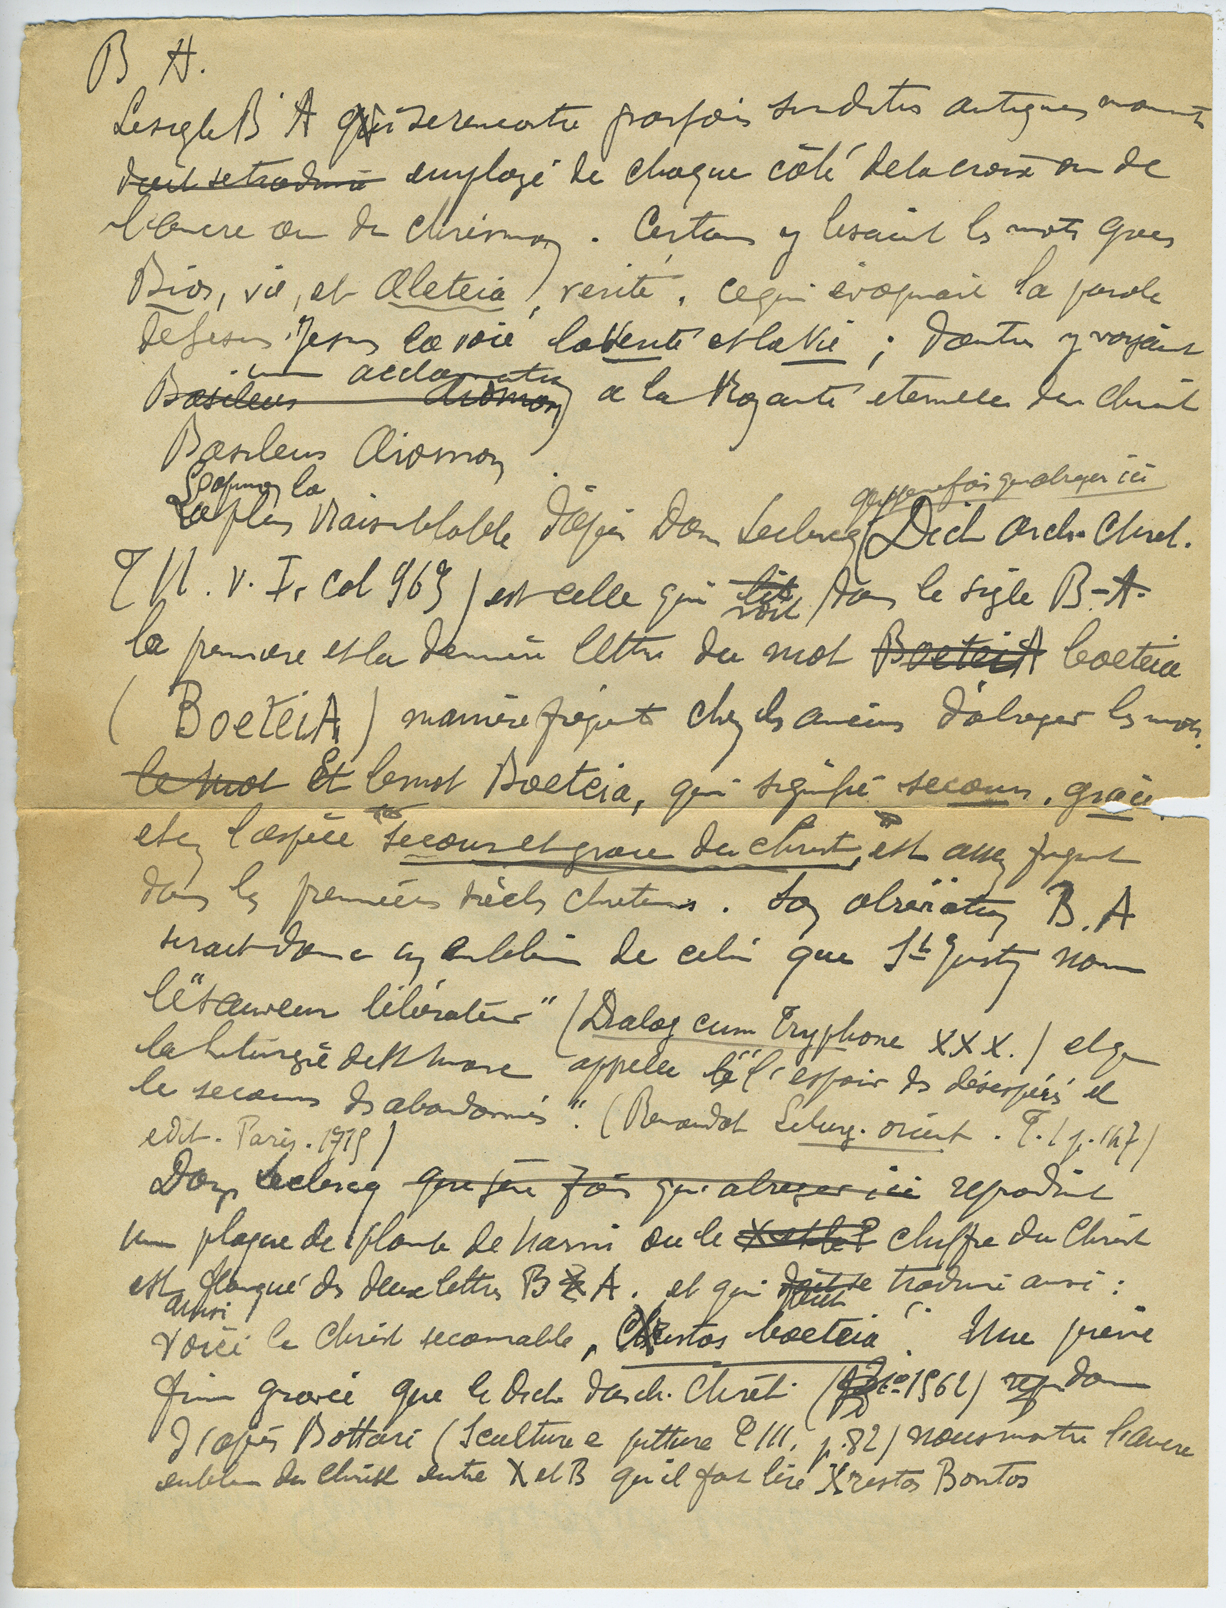 B A.
Le sigle B A qui se rencontre parfois sur d'antiques
doit se traduire employé de chaque côté de la croix ou de
l'ancre ou du chrismon. Certains y lisaient les mots grecs
Bios, vie, et Aleteia, vérité, ce qui évoquait la parole
de Jesus "Jesus la voie la Verité et la Vie ; d'autres y voyaient
une acclamation
Basileus Aiomon a la Royauté eternelle du Christ
Basileus Aiomon
L'opinion la
La plus vraisemblable d'après Dom Leclercq (Dict. arch. Chret.
T II. v. I. col 963) est celle qui lit voit dans le sigle B-A-
la première et la dernière lettre du mot BoeteiA boeteia
( BoeteiA ) manière fréquente chez les anciens d'abréger les mots.
le mot Et le mot Boeteia, qui signifie secours, grâce,
et en l'espèce secours et grace du Christ, est assez fréquent
dans les premiers siècles chretiens. Son abréviation B. A
serait donc un emblème de celui que St Justin nomme
le "sauveur libérateur" (Dialog cum Tryphone XXX.) et que
la liturgie de St Marc appelle le "l'espoir des désespérés et
le secours des abandonnés". (Renaudot Liturg. orient. T. I p. 147)
edit. Paris. 1715)
Dom Leclercq que je ne fais qu'abreger ici reproduit
une plaque de plomb de où le X et le P chiffre du Christ
est flanqué des deux lettres B A. et qui doit se peut traduire ainsi :
ainsi
voici le Christ secourable, Christos boeteia. Une pierre
fine gravée que le Dict. d'arch. Chrét. (1962) donne
d'après Bottari (Sculture e pitture T III. p. 82) nous montre l'ancre
emblème du Christ entre X et B qu'il faut lire Xrestos Bontos